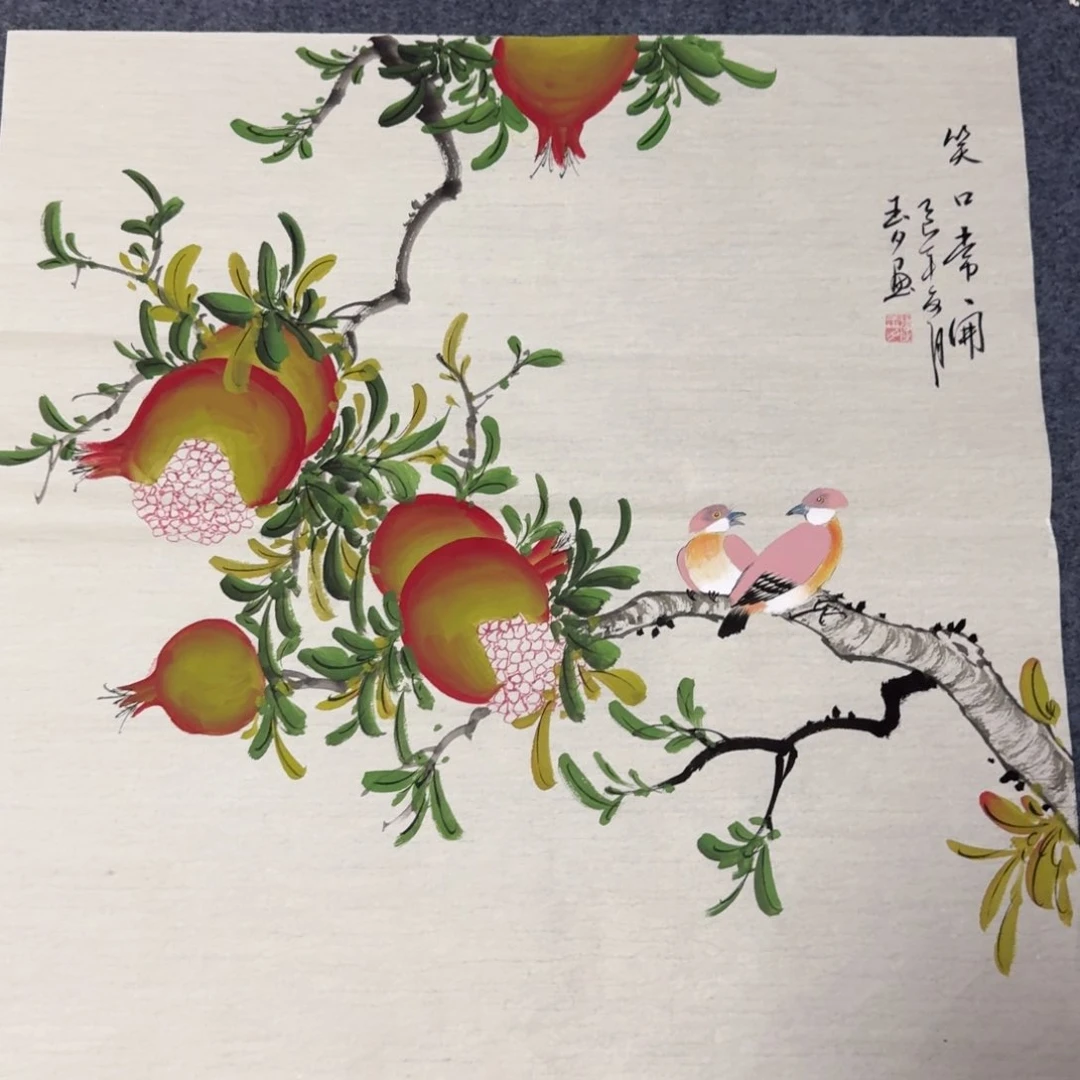 笑口常開
己年冬月
玉夕画